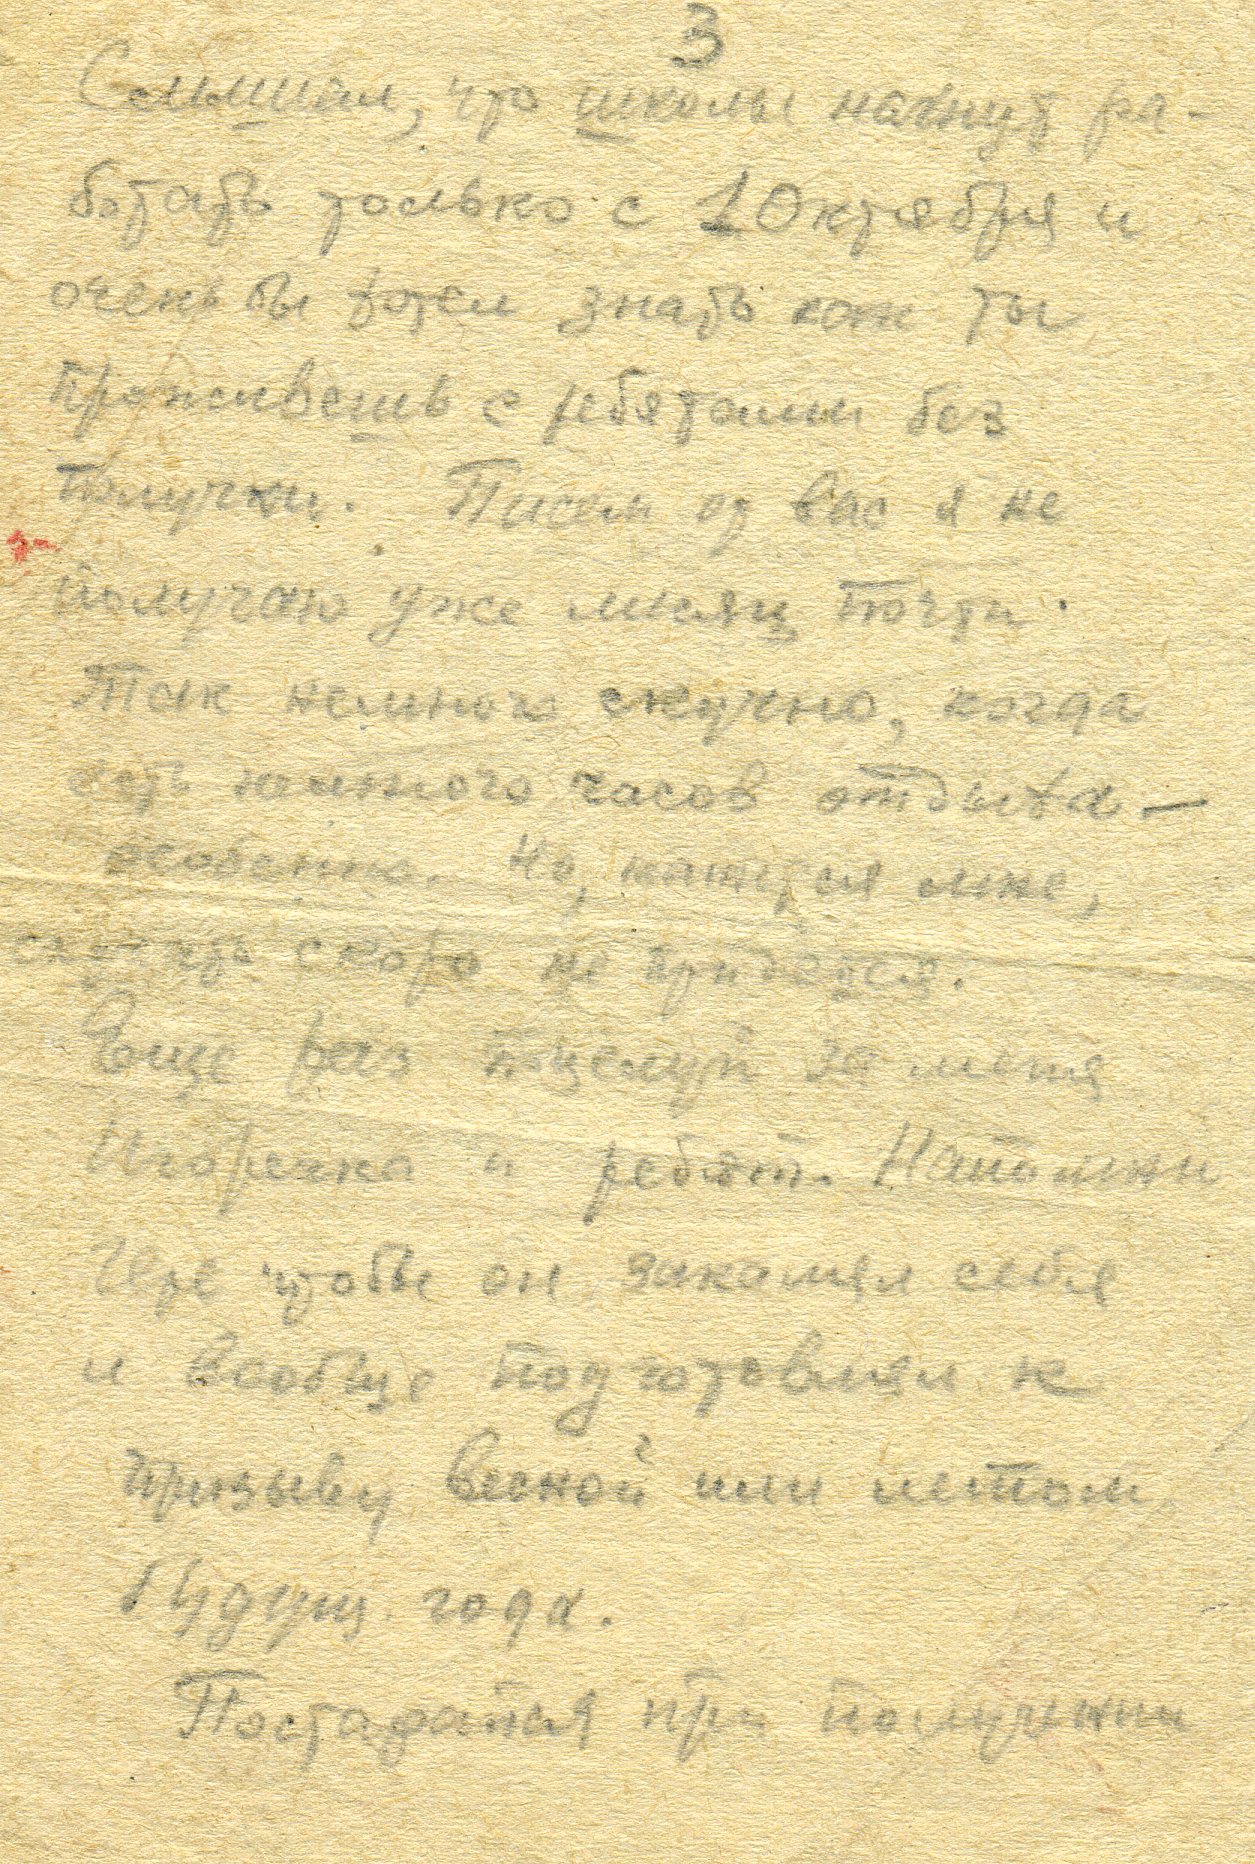 3
Слышал, что школы начнут ра-
ботать только с 1 Октября и
очень бы хотел знать как ты
проживешь с ребятами без
получки. Писем от вас я не
получаю уже месяц почти.
Так немного скучно, когда
есть немного часов отдыха —
особенно. Но, кажется мне,
скучать скоро не придется.
Еще раз поцелуй за меня
Игоречка и ребят. Напомни
Гере чтобы он закалял себя
и вообще подготовлял к
призыву весной или летом
будущ. года.
Постарайся при получении